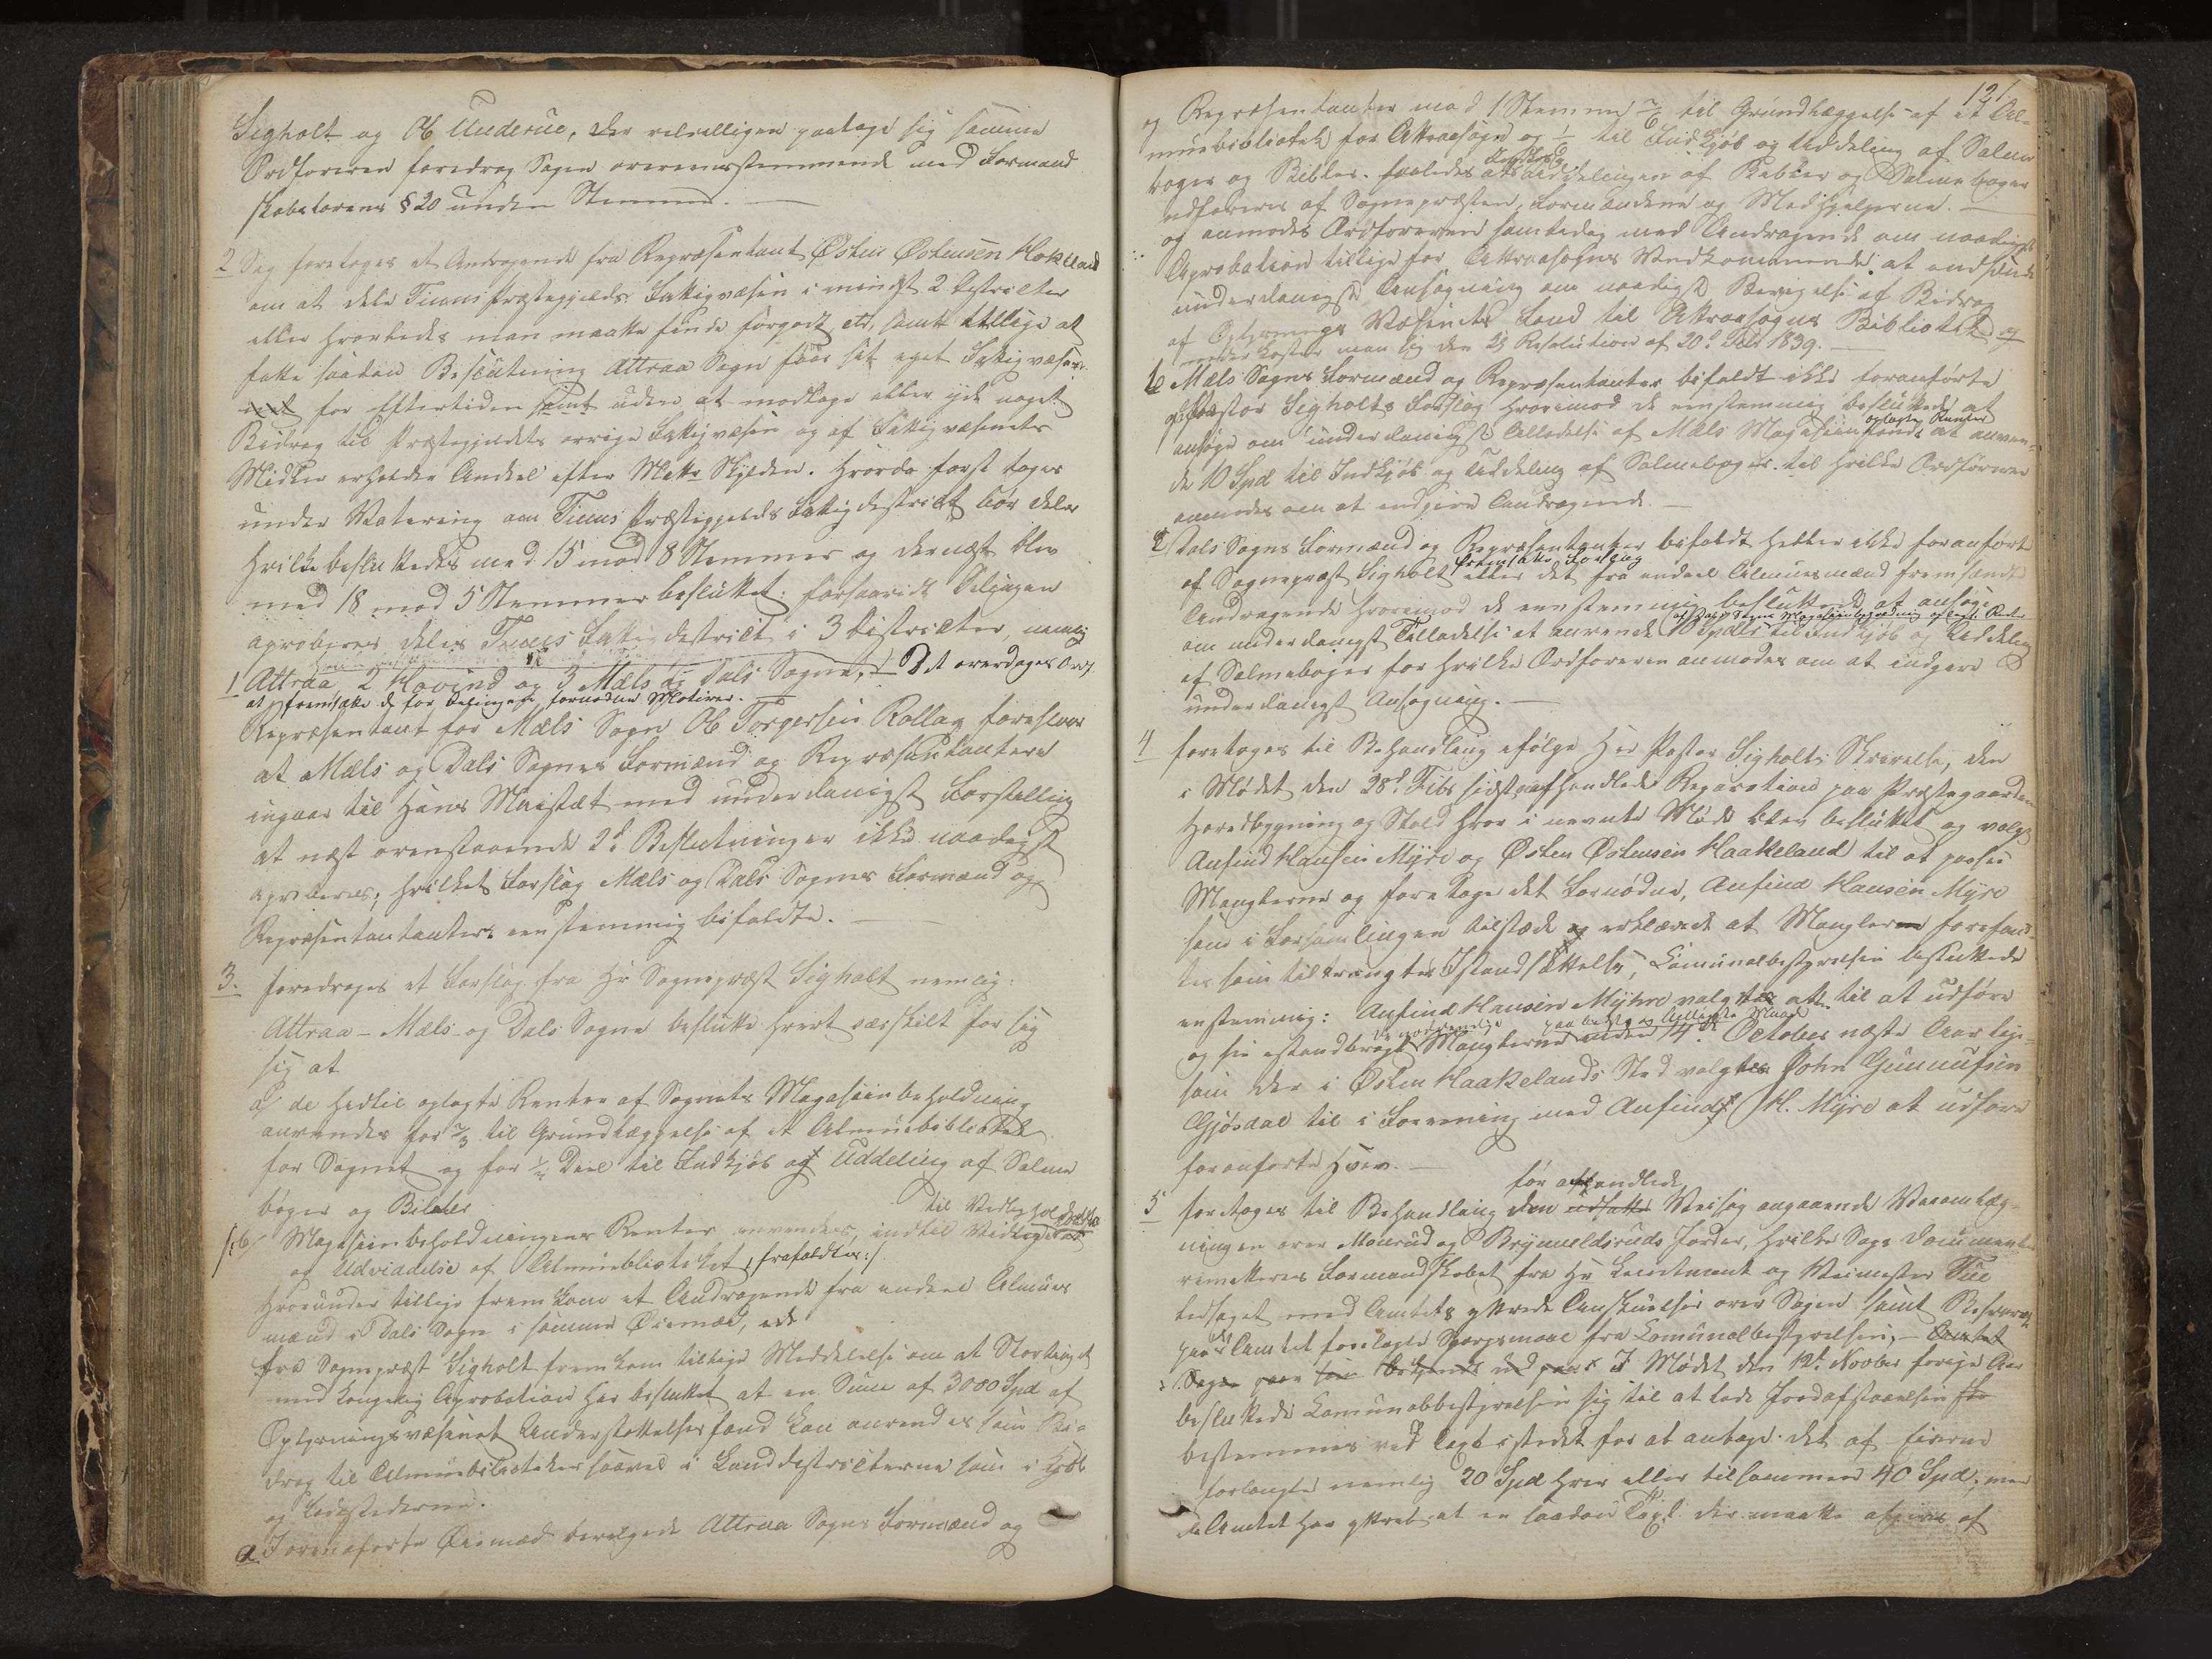 Sigholt og Ole Underue, der velvilligen paatage sig samme
Ordføreren foredrog Sagen overeensstemmende med Formand
skabslovens § 20 under Stemmer. —
2 Dog foretoges et Andragende fra Repræsentant Østen Østensen Hokeland
om at dele Tinns Præstegjelds Fattigvæsen i mindst 2 Destricter
eller hvorledes man maatte finde forgodt etc, samt tillige at
fatte saadan Beslutning Attraa Sogn faar sit eget Fattigvæsen
for Eftertiden samt uden at modtage eller yde noget
Bidrag til Præstegjeldets øvrige Fattigvæsen og af Fattigvæsenets
Midler erholder Andeel efter Matr Skylden. Hvorda først toges
under Votering om Tinns Præstegjelds Fattigdestrict bør deles
hvilke besluttedes med 15 mod 8 Stemmer og dernæst blev
med 18 mod 5 Stemmer besluttet: forsaavidt Delingen
aproberes deles Tinns Fattigdestrict i 3 Districter, nemlig
1 Attraa 2 Hovind og 3 Mæls og Dals Sogne. — Det overdrages Ordf.
at fremsætte de for Delingen fornødne Motiver. —
Repræsentant for Mæls Sogn Ole Torgersen Rollag foreslaar
at Mæls og Dals Sognes Formænd og Repræsentantere
ingaar til Hans Maiestæt med underdanigst Forstilling
at næst ovenstaaende 2de Beslutninger ikke naadigst
aproberes; hvilket Forslag Mæls og Dals Sognes Formænd og
Repræsentantanter eenstemmig bifaldte. —
3. foredroges et Forslag fra Hr Sognepræst Sigholt nemlig:
Attraa - Mæls og Dals Sogne beslutte hvert særskilt for sig
sig at
a/ de hidtil oplagte Renter af Sognets Magasinbeholdning
anvendes for 2/3 til Grundlæggelse af et Almuebibliotek
for Sognet og for 1/3 Deel til Indkjøb og Uddeling af Salme
bøger og Bibler
til Vedligeholdelse
/:b/ Magasinbeholdningens Renter anvendes, indtil
og Udvidelse af Almuebiblioteket, frafaldtes:/.
Hvorunder tillige fremkom et Andragende fra endeel Almues
mænd i Dals Sogn i samme Øiemed, ede
fra Sognepræst Sigholt fremkom tillige Meddelelse om at Stortinget
med Kongelig Aprobation har besluttet at en Sum af 3000 Spd af
Oplysningsvæsenet Understøttelsesfond kan anvendes som Bi-
drag til Almuebiblioteker saavel i Landdestricterne som i Kjøb
og Ladestederne.
a I foranførte Øiemed bevilgede Attraa Sogns Formænd og
121
og Repræsentanter mod 1 Stemme 2/3 til Grundlæggelse af et Al-
muebibliotek for Attraasogn og 1/3 til Indkjøb og Uddeling af Salme
bøger og Bibler. saaledes at Uddelingen af Bibler og Salmebøger
udføres af Sognepræsten, Formændene og Medhjelperne. —
og anmodes Ordføreren samtedag med Andragende om naadigst
Aprobation tillige for Attraasogns Vedkommende at indsende
underdanigst Ansøgning om naadigst Bevilgelse af Bidrag
af Oplysnings Væsenets Fond til Attraasogns Bibliotek og
man sig den 25 Resolution af 20de Juli 1839. —
b Mæls Sogns Formænd og Repræsentanter bifaldt ikke foranførte
af Pastor Sigholts Forslag hvorimod de eenstemmig besluttede at
oplagte Renter
ansøge om underdanigst Tilladelse af Mæls Magasins Fonds at anven-
de 10 Spd til Indkjøb og Uddeling af Salmebøger. til hvilke Ordføreren
anmodes om at indgive Andragende. —
c Dals Sogns Formænd og Repræsentanter bifaldt heller ikke foranført
fremsatte Forslag
af Sognepræst Sigholt eller det fra endeel Almuesmænd fremsendte
Andragende hvorimod de eenstemmig besluttede at ansøge
af Dals Sogns Magasinbeholdning oplagte Renter
om underdanigst Tilladelse at anvende 10 Spdlr til Indkjøb og Uddeling
af Salmebøger for hvilke Ordføreren anmodes om at indgive
underdanigst Ansøgning. —
4 foretoges til Behandling ifølge Her Pastor Sigholts Skrivelse, den
i Mødet den 28de Febr sidst afhandlede Reparation paa Præstegaardens
Hovedbygning og Stald hvor i nævnte Møde blev besluttet og valgt
Anfind Hansen Myre og Østen Østensen Haakeland til at paasee
Manglerne og foretage det Fornødne, Anfind Hansen Myre
som i Forsamlingen tilstæde og erklærede at Manglerne forefand-
tes som tiltrængtes Istandsættelse, Comunalbestyrelsen besluttede
enstemmig: Anfind Hansen Myhre valgtes atter til at udføre
de nødvendige paa bedste og billigste Maade
og faae istandbragt Manglerne inden 14de October næste Aar lige
som der i Østen Haakelands Sted valgtes John Gunnufsen
Gjøsdal til i Forening med Anfind H. Myre at udføre
foranførte Hverv. —
før afhandlede
5 foretoges til Behandling den udsatte Veisag angaaende Veiomlæg-
ningen over Monrud og Brynueldsruds Jorder, hvilke Sags Documenter
remitteres Formandskabet fra Hr Leuitenant og Veimester Due
ledsaget med Amtets yttrede Anskuelser over Sagen samt Resolution
paa Amtet forelagte Spørgsmaal fra Comunalbestyrelsen, —
I Mødet den 12te Novbr forige Aar
besluttede Comunalbestyrelsen sig til at lade Jordafstaaelsen
bestemmes ved Taxt istedet for at antage det af Eierne
forlangte nemlig 20 Spd hver eller tilsammen 40 Spd; men
da Amtet har yttret at en saadan Taxt der maatte afgives af